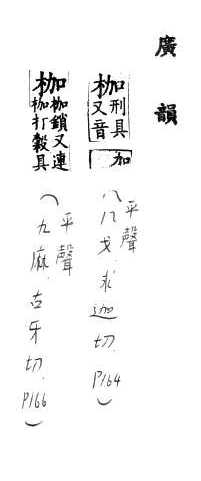 廣韻
枷刑具又音加
(平聲八戈.求迦切.P164)
枷枷鎖又連枷打穀具
(平聲九麻.古牙切.P166)